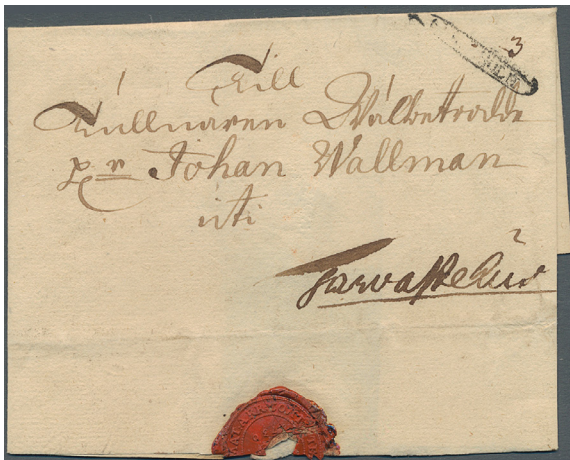 3
Till
Tullnären Wälbetrodde
Johan Wallman
uti
Tarvastehus